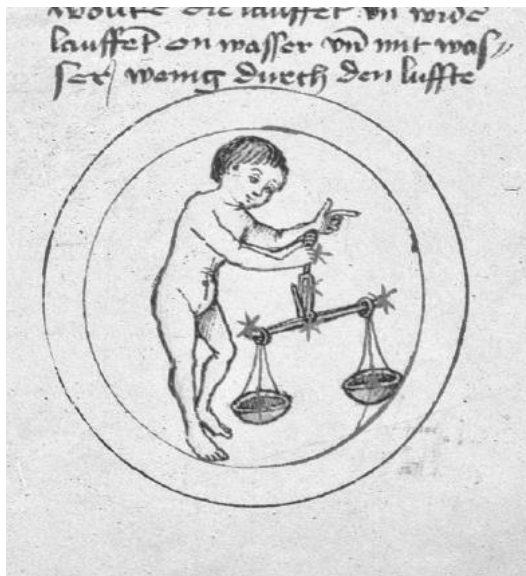 die lauffet vn wide
lauffet̄ on wasser vn̄ mit was//
ser/ wenig durch den luffte